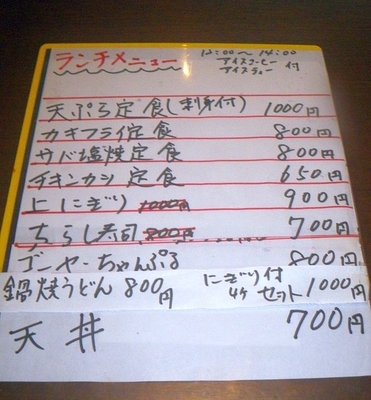 ランチメニュー
12:00〜14:00
アイスコーヒー
アイスティー 付
天ぷら定食(刺身付) 1000円
カキフライ定食 800円
サバ塩焼定食 800円
チキンカツ定食 650円
上にぎり 1000円 900円
ちらし寿司 800円 700円
ゴーヤーちゃんぷる 800円
鍋焼うどん 800円 にぎり付 4ケ セット1000円
天丼 700円